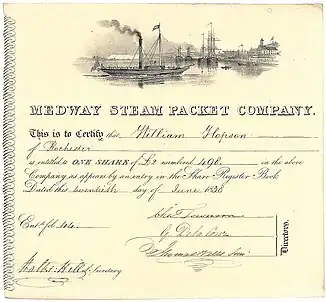 MEDWAY STEAM PACKET COMPANY.
This is to Certify that William Hopson
of Rochester
is entitled to ONE SHARE of £2 numbered 498. in the above
Company as appears by an entry in the Share Register Book
Dated this twentieth day of June 1838
Entd. fol.
Secretary
Directors.